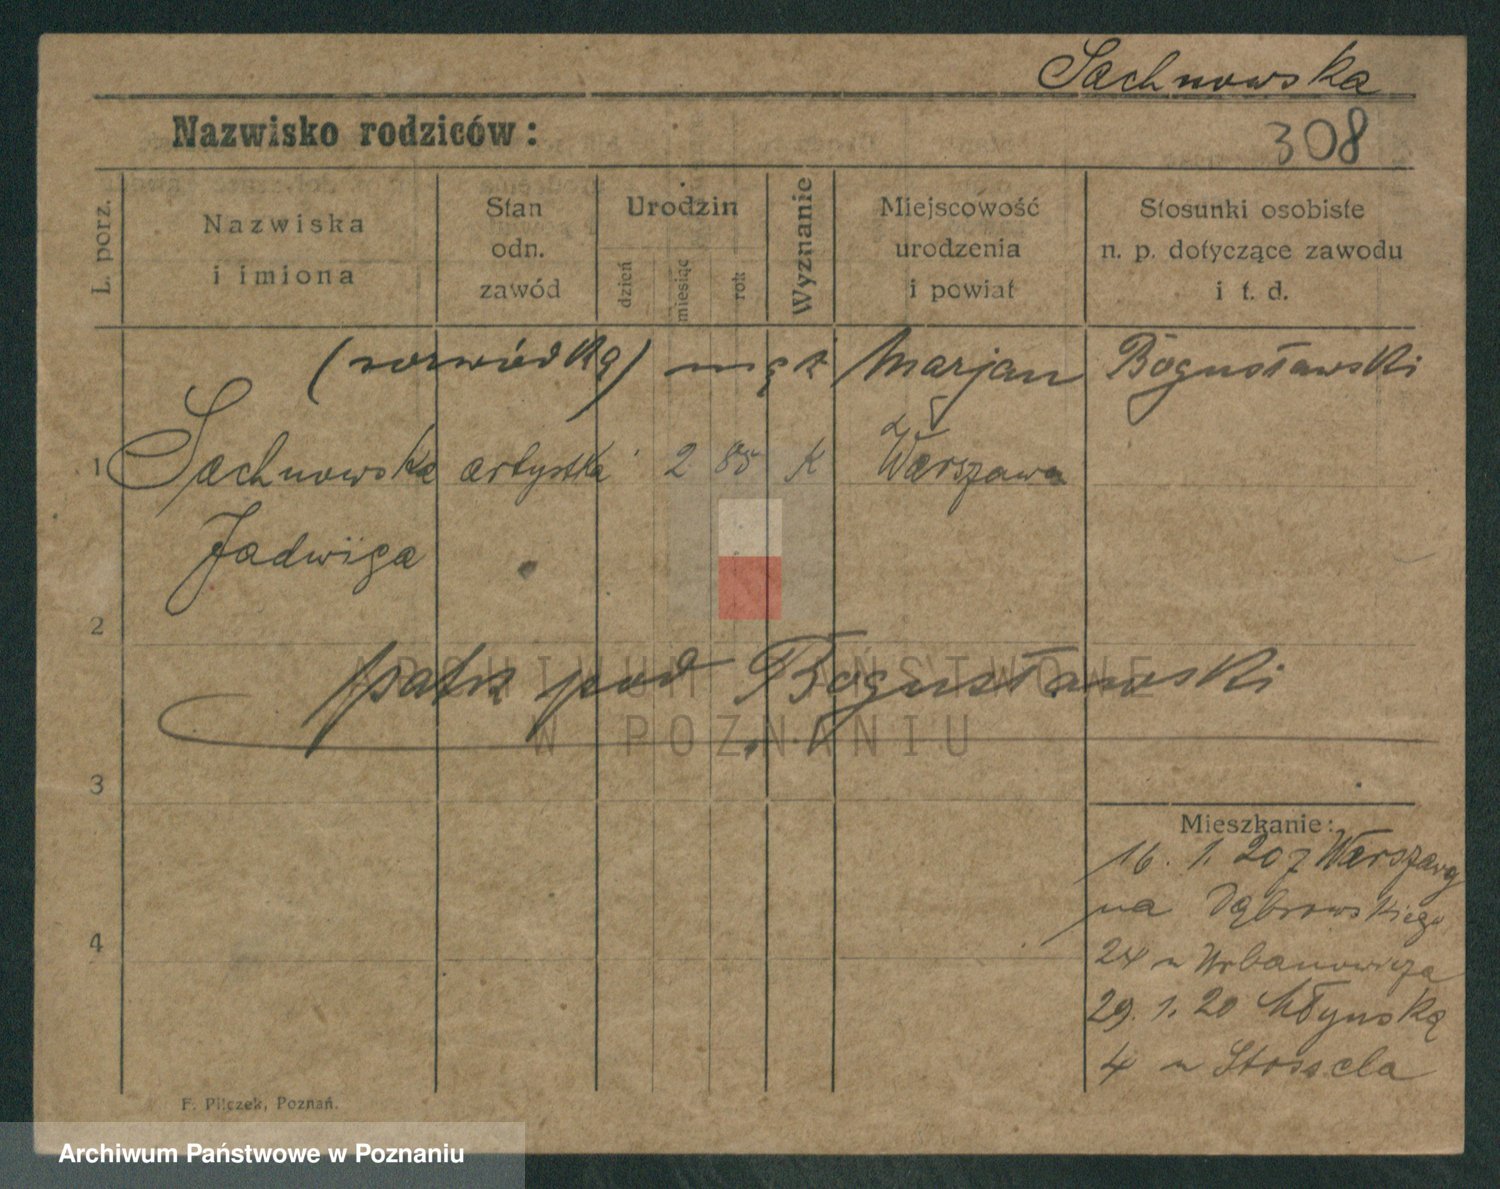 Sachnowska
Nazwisko rodziców:
308
L. porz.
Nazwiska
i imiona
Stan
odn.
zawód
Urodzin
dzień
miesiąc
rok
Wyznanie
Miejscowość
urodzenia
i powiat
Stosunki osobiste
n. p. dotyczące zawodu
i t. d.
(rozwódka) mąż Marjan Bogusławski
1 Sachnowska artystka 2 85 K Warszawa
Jadwiga
2
patrz pod Bogusławski
ARCHIWUM PAŃSTWOWE
W POZNANIU
3
Mieszkanie:
16. 1. 20 z Warszawy
na Dąbrowskiego
4
24 u Urbanowicza
29. 1. 20 Młyńską
4 u Stossela
F. Pilczek, Poznań.
Archiwum Państwowe w Poznaniu